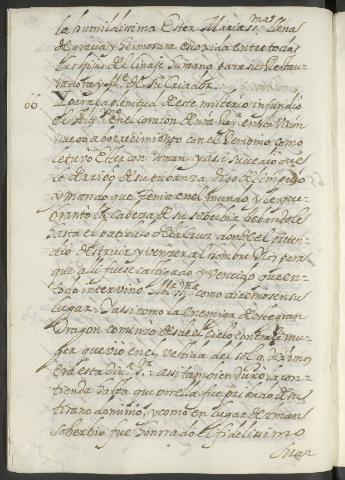 la humilissima Ester Maria SS.ma llena
de gracia y hermosura escogida entre todas
las hijas del linage humano para su Restau-
radora y M.e de su Criador.
66. I para la plenitud de este misterio infundio
el Altis.o en el corazon de
y aborrecimiento con el Demonio, como
le tuvo Ester con Aman, y assi sucedio que
le derribo de su privanza, digo del imperio
y mando que tenia en el mundo y le que-
branto la cabeza de su soberbia llebandole
hasta el patibulo de la Cruz, a donde el preten-
dio destruir y vencer al hombre Dios para
que alli fuese castigado y vencido que en
todo intervino M.a SS.ma como diremos en su
lugar. I assi como la enemiga de este gran
Dragon comenzo desde el cielo contra la mu-
ger que vio en el vestida del sol q. diximos
era esta div.a S.ra assi tambien duro la con-
tienda hasta que por ella fue privado de su
tirano dominio, y como en lugar de Aman
soberbio fue honrado el fidelissimo